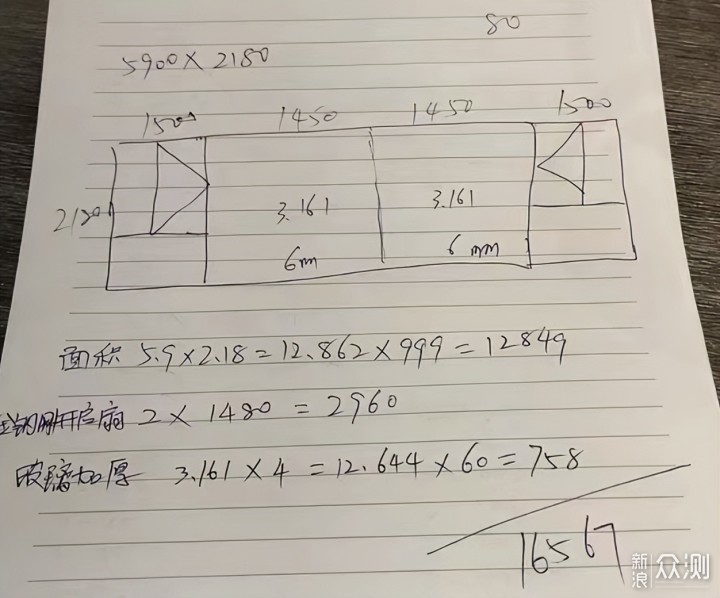 80
5900×2180
1500 1450 1450 1500
2180
3.161 3.161
6m 6mm
面积 5.9×2.18=12.862×999=12849
开启扇 2×1480=2960
玻璃加厚 3.161×4=12.644×60=758
16567
新浪众测